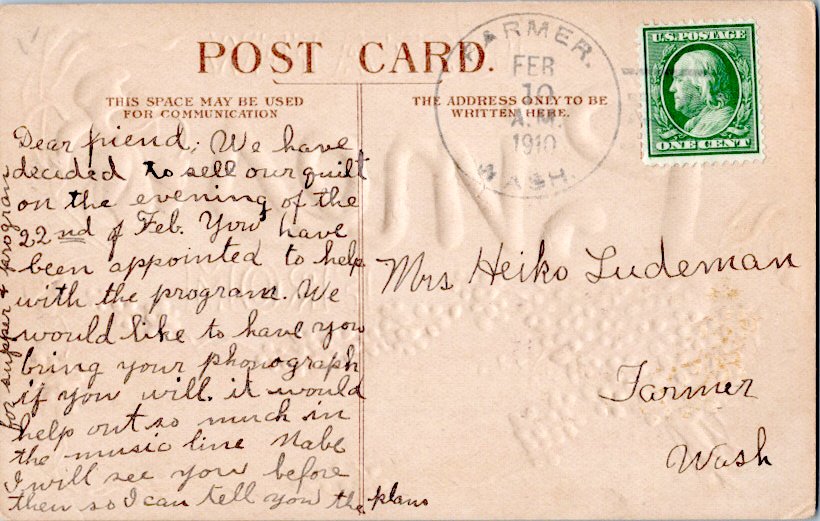 POST CARD.
THIS SPACE MAY BE USED
FOR COMMUNICATION
THE ADDRESS ONLY TO BE
WRITTEN HERE.
FARMER.
FEB
10
A.M.
1910
WASH.
U.S. POSTAGE
ONE CENT
Dear friend; We have
decided to sell our quilt
on the evening of the
22nd of Feb. You have
been appointed to help
with the program. We
would like to have you
bring your phonograph
if you will. it would
help out so much in
the music line Mabe
I will see you before
then so I can tell you the plans
for supper & program
Mrs Heiko Ludeman
Farmer
Wash